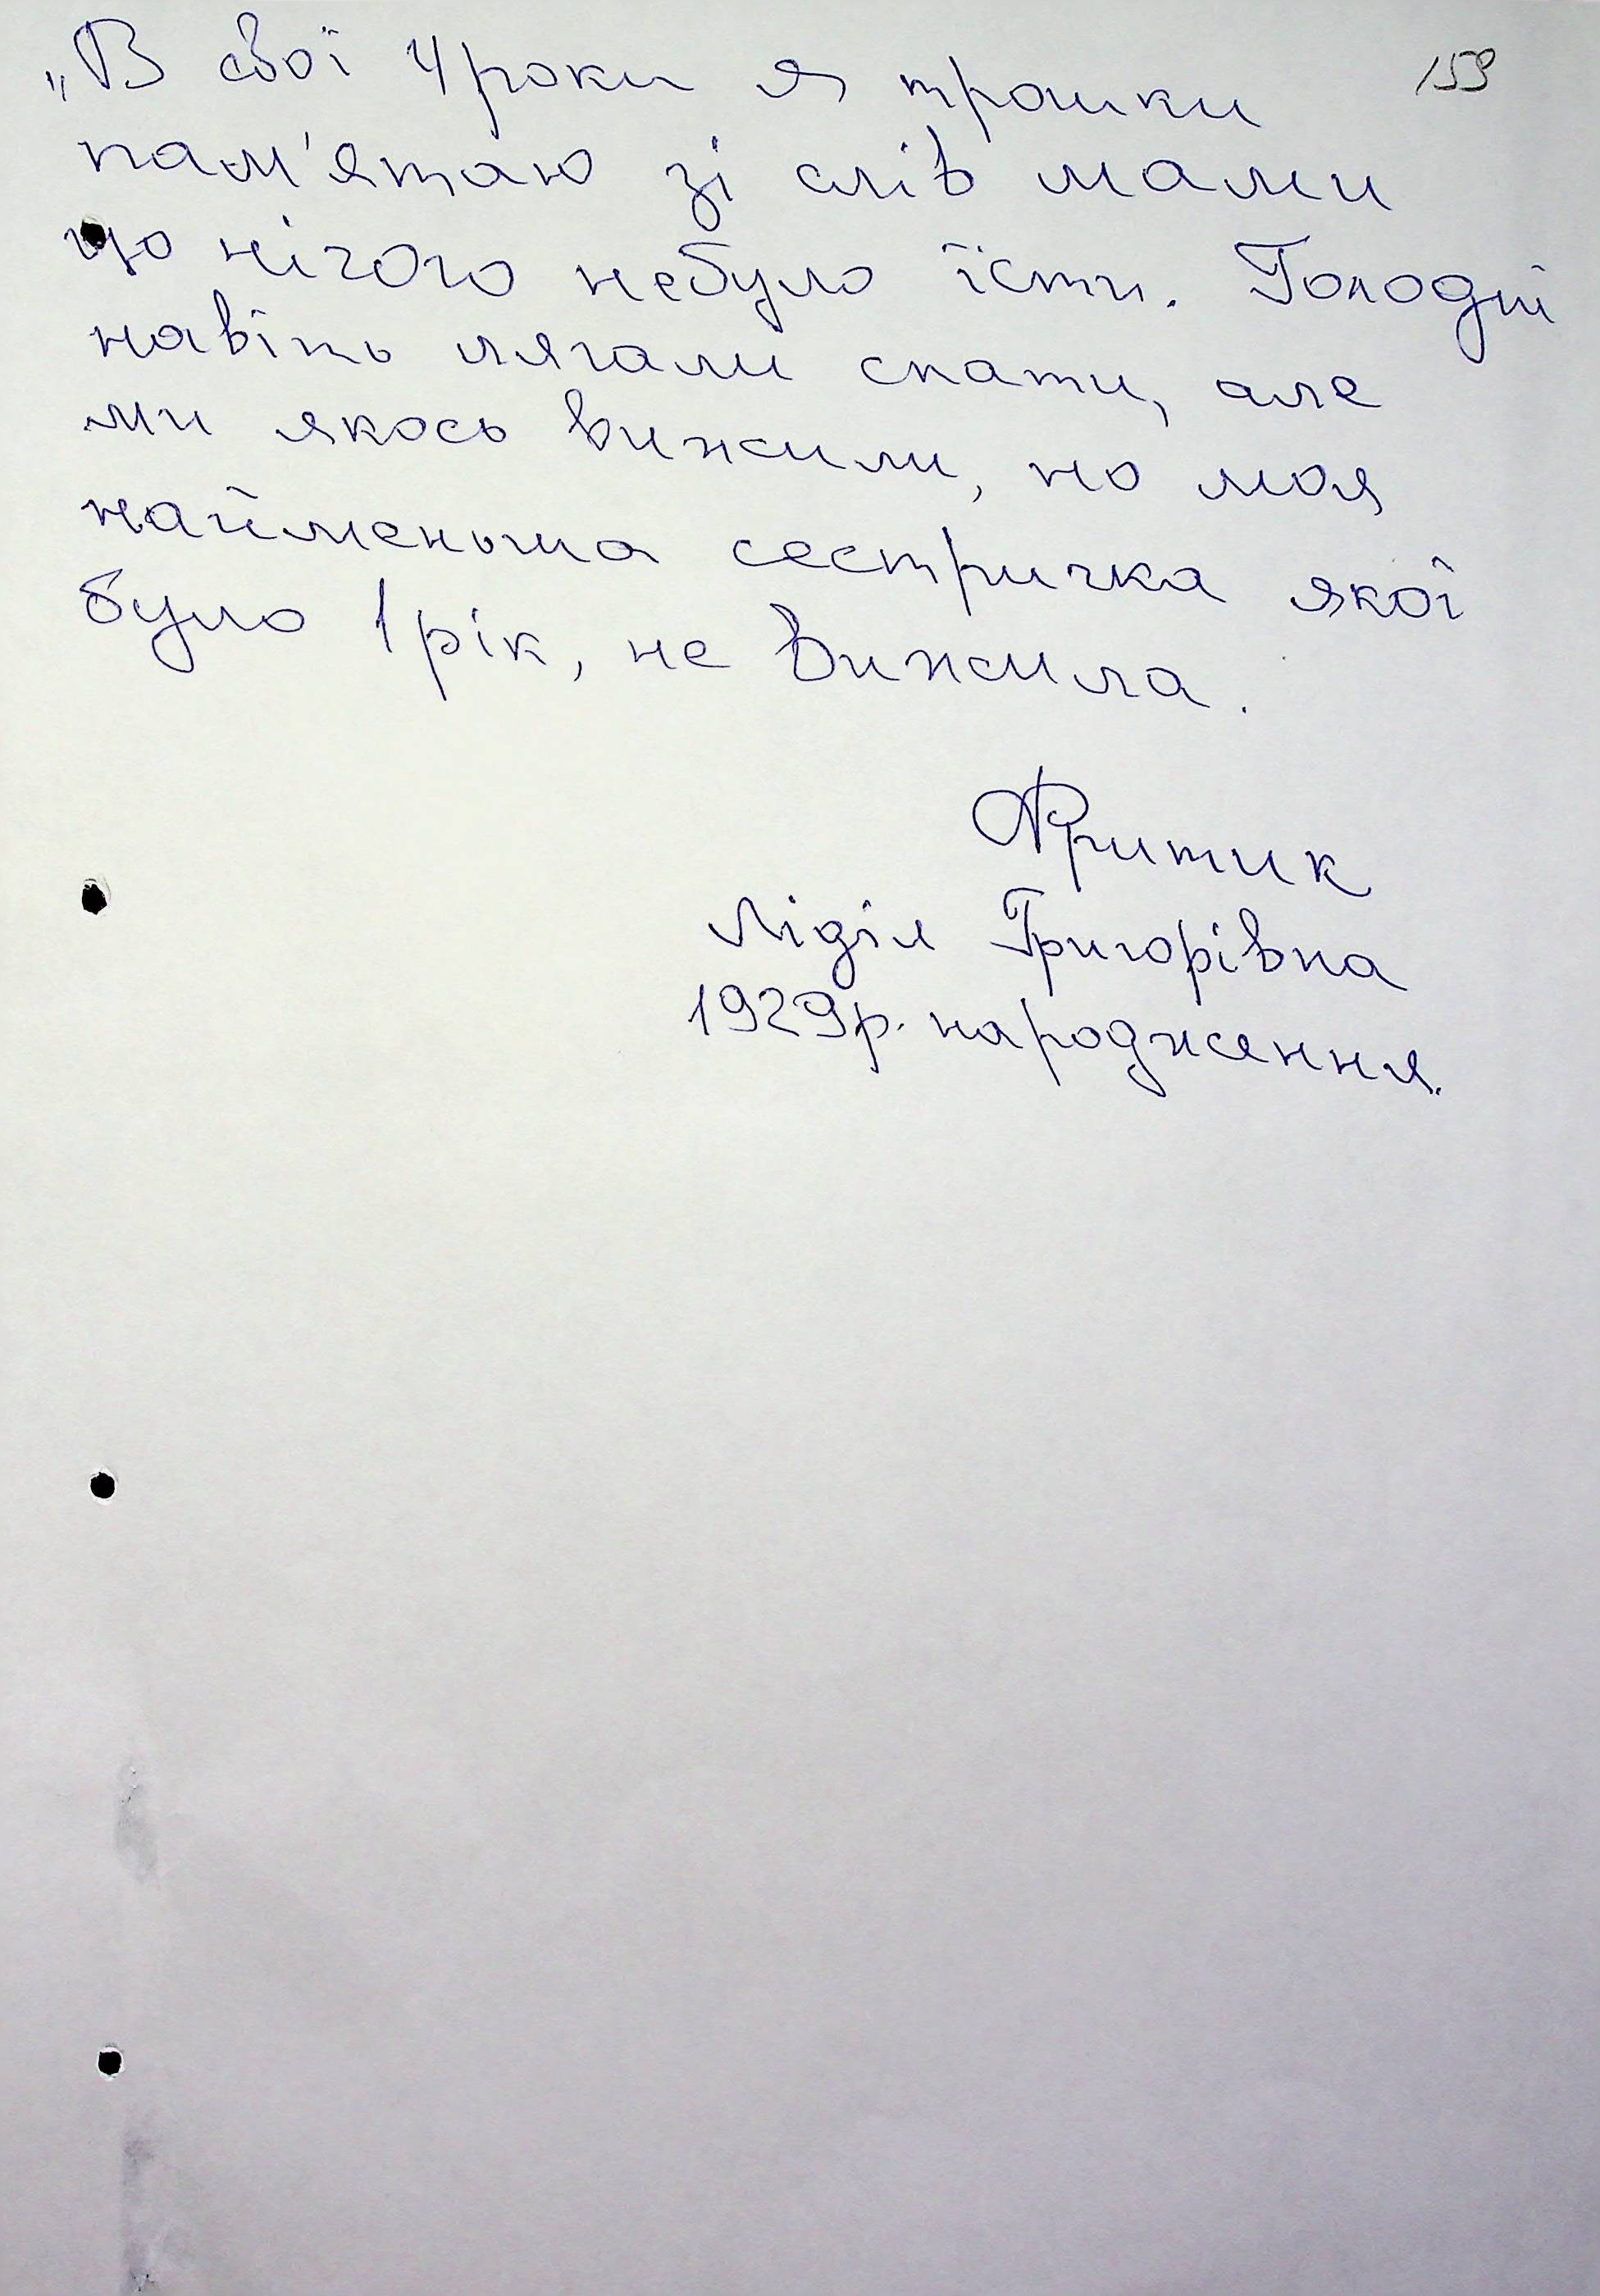 159
„В свої 4 роки я трошки
пам'ятаю зі слів мами
що нічого небуло їсти. Голодні
навіть лягали спати, але
ми якось вижили, но моя
найменьша сестричка якої
було 1 рік, не вижила.
Лідія Григорівна
1929р. народження.